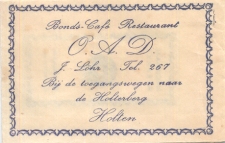 Bonds-Café Restaurant
O. A. D.
J. Lohr Tel. 267
Bij de toegangswegen naar
de Holterberg
Holten